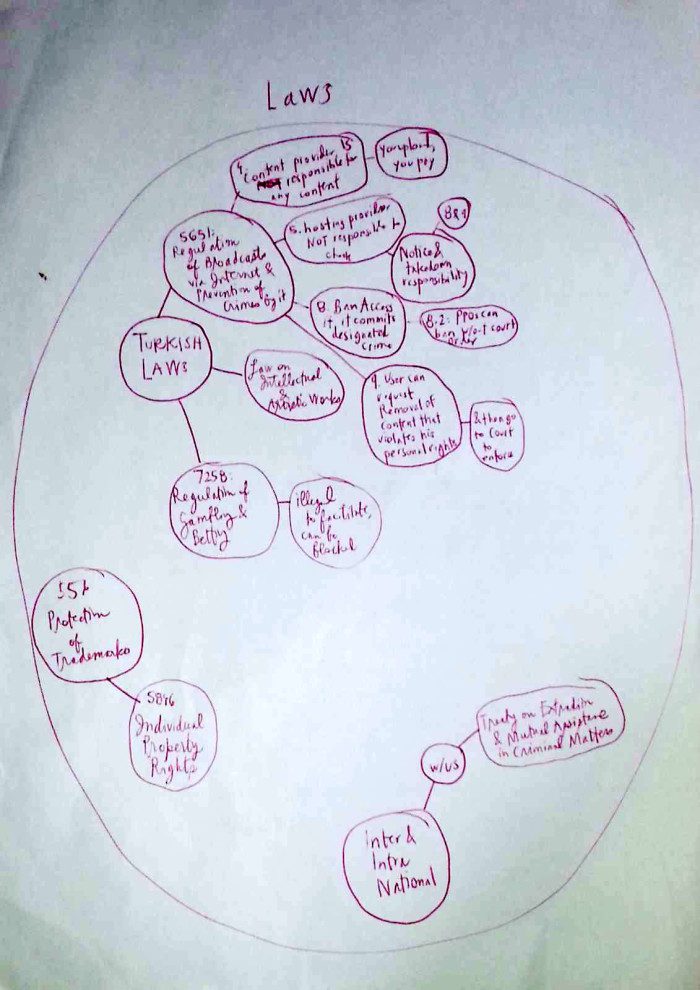 Laws
4. Content provider is
responsible for
any content
you upload,
you pay
5651:
Regulation
of Broadcasts
via Internet &
Prevention of
Crimes by it
5. hosting provider
NOT responsible to
check
Notice &
takedown
responsibility
8. Ban Access
if it commits
designated
crime
8.2: PPOs can
ban w/o court
order
9. User can
request
Removal of
content that
violates his
personal rights
& then go
to Court
to
enforce
TURKISH
LAWS
Law on
Intellectual
&
Artistic Works
7258:
Regulation of
Gambling &
Betting
illegal
to facilitate,
can be
Blocked
Protection
of
Trademarks
5846
Individual
Property
Rights
Treaty on Extradition
& Mutual Assistance
in Criminal Matters
w/US
Inter &
Intra
National